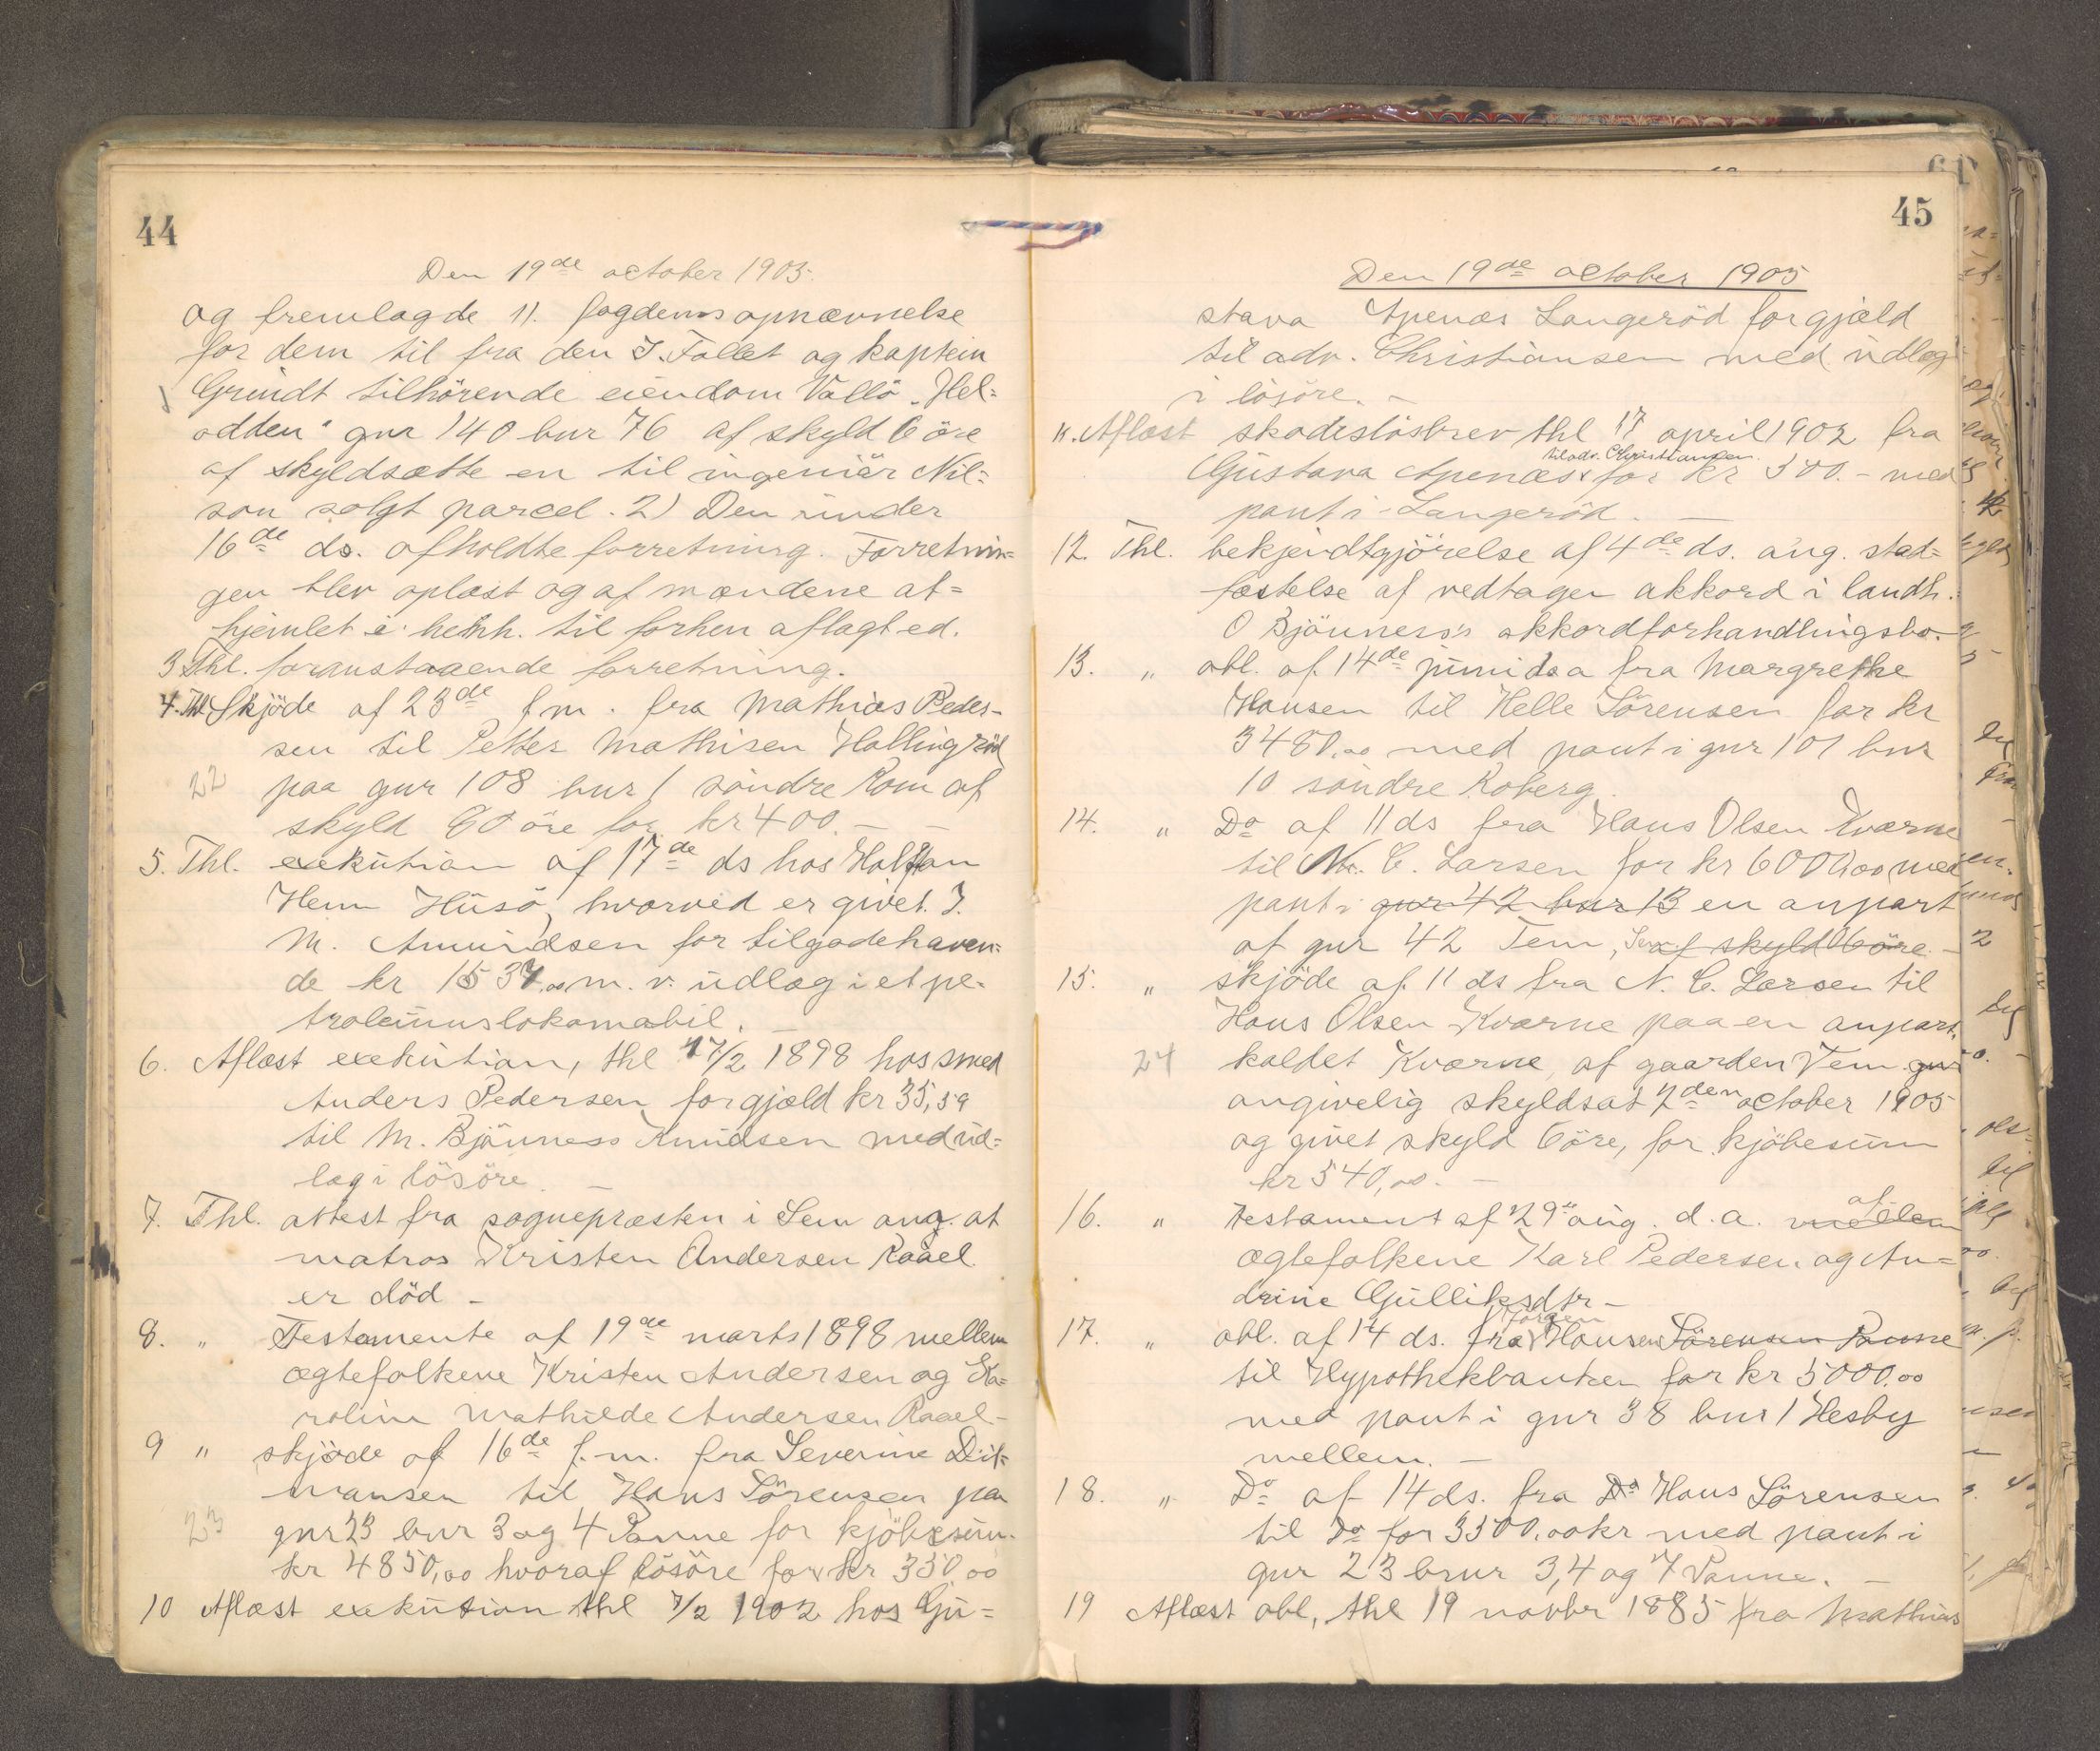 44
Den 19de october 1905.
og fremlagde 1). fogdens opnævnelse
for dem til fra den J. Follet og kaptein
Grundt tilhörende eiendom Vallö "Hel=
odden" gnr 140 bnr 76 af skyld 6 öre
af skyldsætte en til ingeniör Nil=
son solgt parcel. 2) Den under
16de ds. afholdte forretning. Forretnin=
gen blev oplæst og af mændene af=
hjemlet i henh. til forhen aflagt ed.
3 Thl. foranstaaende forretning.
4. Thl Skjöde af 23de f.m. fra Mathias Peder-
sen til Petter Mathisen Hallingröd
22 paa gnr 108 bnr 1 söndre Rom af
skyld 90 öre for kr 400.—
5. Thl. exekution af 17de ds hos Halfdan
Henn Husö, hvorved er givet J.
M. Amundsen for tilgodehaven=
de kr 1537,00 m. v. udlæg i et pe-
troleumslokomobil. —
6. Aflæst exekution, thl 17/2 1898 hos smed
Anders Pedersen for gjæld kr 35,59
til M. Bjönness Knudsen med ud=
læg i lösöre. —
7. Thl. attest fra sognepræsten i Sem ang. at
matros Kristen Andersen Raael
er död —
8. " Testamente af 19de marts 1898 mellem
ægtefolkene Kristen Andersen og Ka=
roline Mathilde Andersen Raael—
9 " skjöde af 16de f.m. fra Severine Dit=
mansen til Hans Sörensen paa
23 gnr 23 bnr 3 og 4 Panne for kjöbesum
kr 4850,00 hvoraf lösöre for kr 350 00
10 Aflæst exekution thl 7/2 1902 hos Gu=
45
Den 19de october 1905
stava Apenæs Langeröd for gjæld
til adv. Christiansen med udlæg
i lösöre. —
11. Aflæst skadeslösbrev thl 17 april 1902 fra
til adv. Christiansen
Gustava Apenæs for kr 500.— med
pant i Langeröd. —
12. Thl. bekjendtgjörelse af 4de ds. ang. stad=
fæstelse af vedtagen akkord i landh.
O Bjönness's akkordforhandlingsbo.
13. " obl. af 14de juni d a fra Margrethe
Hansen til Helle Sörensen for kr
3480.00 med pant i gnr 101 bnr
10 söndre Roberg.
14. " Do af 11 ds fra Hans Olsen Kværne
til N. C. Larsen for kr 6000,00 med
pant i gnr 42 bnr 13 en anpart
af gnr 42 Tem, Sem af skyld 06 öre. —
15. " skjöde af 11 ds fra N. C. Larsen til
Hans Olsen Kværne paa en anpart,
24 kaldet Kværne, af gaarden Tem gnr
angivelig skyldsat 2den october 1905
og givet skyld 6 öre, for kjöbesum
kr 540,00. —
16. " testament af 29de aug. d.a. mellem af
ægtefolkene Karl Pedersen og An=
drine Gulliksdtr —
17. " obl. af 14 ds. fra Jörgen Hansen Sörensen Panne
til Hypothekbanken for kr 5000.00
med pant i gnr 38 bnr 1 Hesby
mellem. —
18. " Do af 14 ds. fra Do Hans Sörensen
til do for 3500,00 kr med pant i
gnr 23 bnr 3, 4 og 7 Panne. —
19 Aflæst obl, thl 19 novbr 1885 fra Mathias